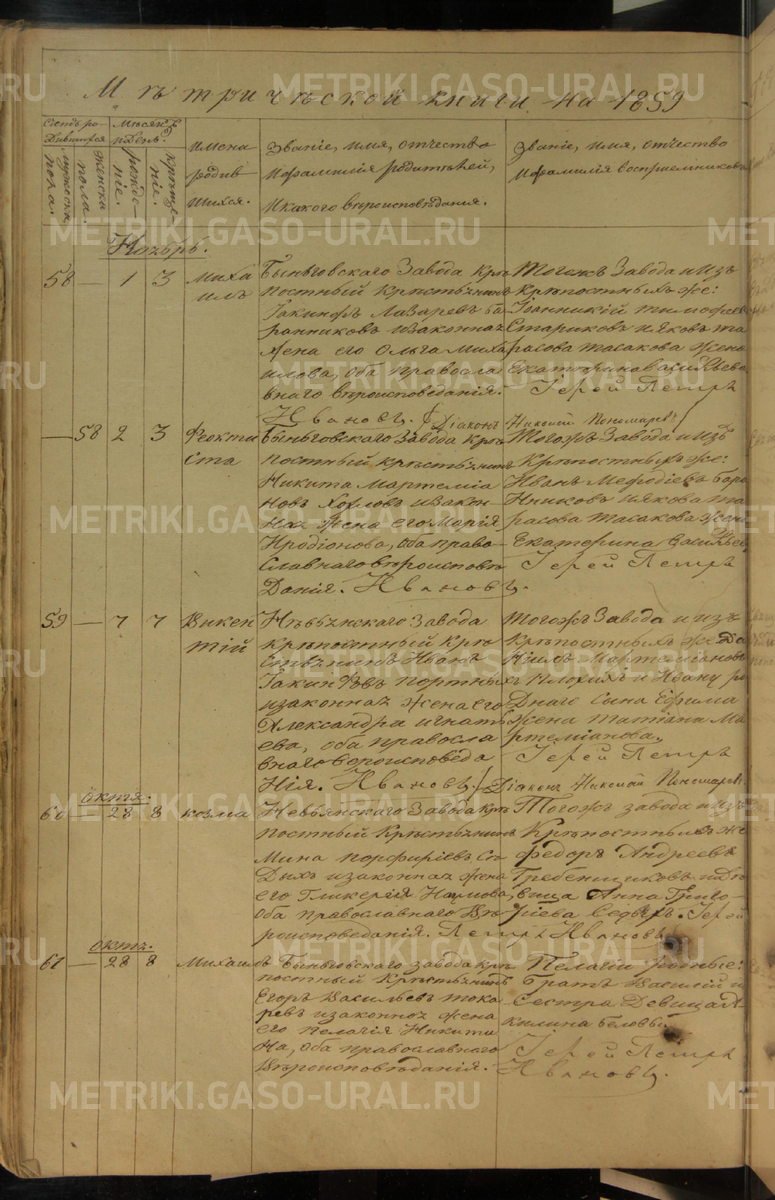 METRIKI.GASO-URAL.RU
Метрической книги на 1859
Счетъ родившихся
Мѣсяцъ и День.
мужеска пола.
женска пола.
рожденіе.
крещеніе.
Имена
родив
шихся.
Званіе, имя, отчество
и фамилія родителей,
и какого вѣроисповѣданія.
Званіе, имя, отчество
и фамилія воспріемниковъ
Ноябрь.
58 — 1 3
Миха
илъ
Быньговскаго Завода крѣ
постный крестьянинъ
Іакинфъ Лазаревъ Ба
ранниковъ и законная
жена его Ольга Миха
илова, оба правосла
внаго вѣроисповеданія.
Тогожъ Завода и изъ
крѣпостныхъ же:
Іоанникій Тимофеев
Стариковъ и Якова Та
расова Масакова жена
Екатерина Васильева
Іерей Петръ
Ивановъ. Діаконъ Николай Пономаревъ
— 58 2 3
Феокти
ста
Быньговскаго Завода крѣ
постный крестьянинъ
Никита Мартеміа
новъ Хохловъ и закон
ная жена его Марія
Иродіонова, оба право
славнаго вѣроисповѣ
данія.
Тогожъ Завода и изъ
крѣпостныхъ же:
Иванъ Мефодіевъ Бара
нниковъ и Якова Та
расова Масакова жена
Екатерина Василье
Іерей Петръ
Ивановъ.
59 — 7 7
Викен
тій
Невьянскаго Завода
крѣпостный кре
стьянинъ Иванъ
Іакинфовъ Портныхъ
и законная жена его
Александра Игнать
ева, оба правосла
внаго вероисповѣда
нія.
Тогожъ Завода и изъ
крѣпостныхъ же Да
ніилъ Мартеміановъ
Плохихъ и Ивану ро
днаго сына Ефима
жена Татіана Ма
ртеміанова,
Іерей Петръ
Ивановъ. Діаконъ Николай Пономарев
окт.
60 — 28 8
Козма
Невьянскаго Завода крѣ
постный крестьянинъ
Мина Порфиріевъ Се
дыхъ и законная жена
его Гликерія Наумова,
оба православнаго вѣ
роисповеданія.
Тогожъ завода и изъ
крѣпостныхъ же
Федоръ Андреевъ
Гребенщиковъ и дѣ
вица Анна Григо
ріева Седыхъ. Іерей
Петръ Ивановъ
окт.
61 — 28 8
Михаилъ
Быньговскаго завода крѣ
постный крестьянинъ
Егоръ Васильевъ Тока
ревъ и законная жена
его Пелагія Никити
на, оба православнаго
вѣроисповѣданія.
Пелагіи родные:
братъ Василій и
сестра девица А
килина Беловы.
Іерей Петръ
Ивановъ.